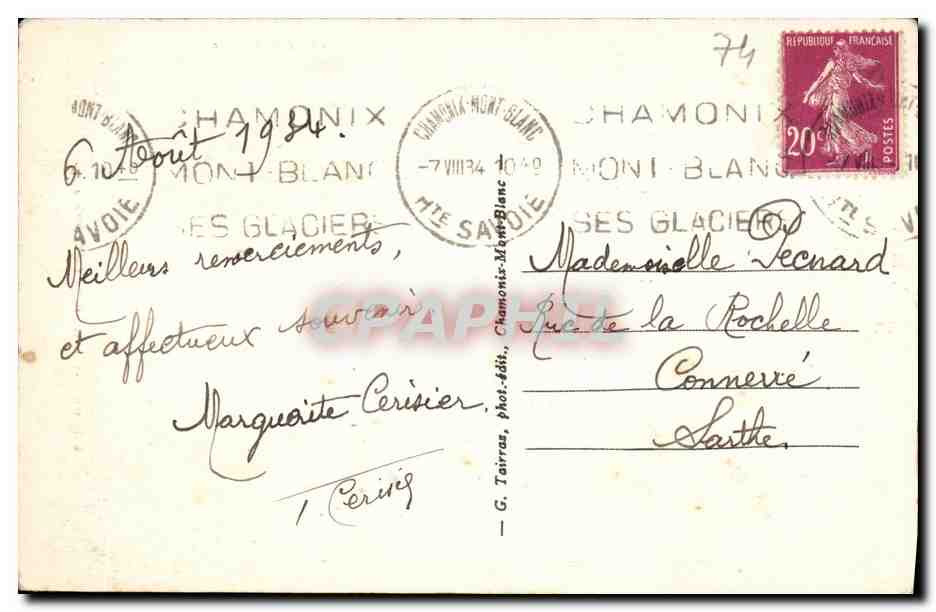 74
RÉPUBLIQUE FRANÇAISE
20c
POSTES
CHAMONIX
MONT-BLANC
SES GLACIERS
CHAMONIX-MONT-BLANC
-7 VIII 34 10 48
HTE SAVOIE
CHAMONIX
MONT-BLANC
SES GLACIERS
6 Août 1934.
Meilleurs remerciements,
et affectueux souvenir.
Marguerite Cerisier.
Cerisier
— G. Tairraz, phot.-édit., Chamonix-Mont-Blanc —
Mademoiselle Pecnard
Rue de la Rochelle
Connerré
Sarthe
CPAPHIL